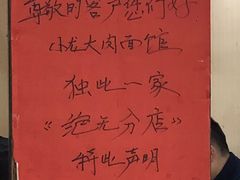 尊敬的客户您们好
小龙大肉面馆
独此一家
《绝无分店》
特此声明